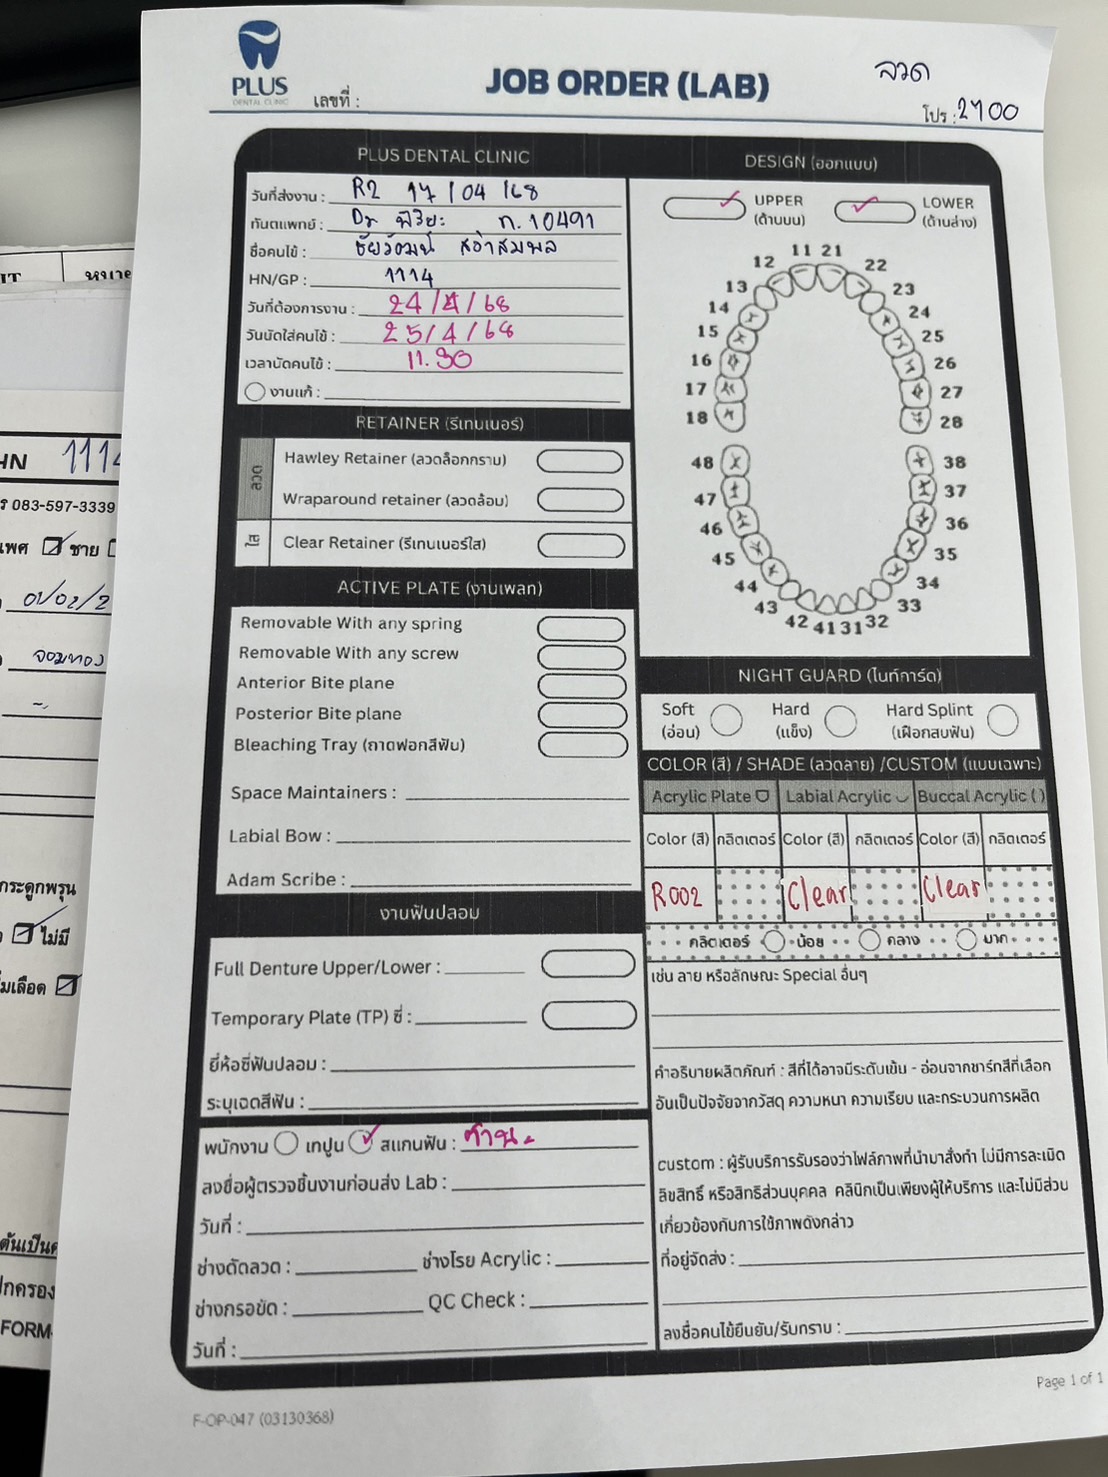 PLUS
DENTAL CLINIC
เลขที่ :
JOB ORDER (LAB)
ลวด
โปร : 2700
PLUS DENTAL CLINIC
วันที่ส่งงาน : R2 17/04/68
ทันตแพทย์ : Dr พิริยะ ท.10491
ชื่อคนไข้ : ชัยวัฒน์
HN/GP : 1114
วันที่ต้องการงาน : 24/4/68
วันนัดใส่คนไข้ : 25/4/68
เวลานัดคนไข้ : 11.30
งานแก้ :
RETAINER (รีเทนเนอร์)
ลวด
Hawley Retainer (ลวดล็อกกราม)
Wraparound retainer (ลวดล้อม)
ใส
Clear Retainer (รีเทนเนอร์ใส)
ACTIVE PLATE (งานเพลท)
Removable With any spring
Removable With any screw
Anterior Bite plane
Posterior Bite plane
Bleaching Tray (ถาดฟอกสีฟัน)
Space Maintainers :
Labial Bow :
Adam Scribe :
งานฟันปลอม
Full Denture Upper/Lower :
Temporary Plate (TP) ซี่ :
ยี่ห้อซี่ฟันปลอม :
ระบุเฉดสีฟัน :
พนักงาน เทปูน สแกนฟัน :
ลงชื่อผู้ตรวจชิ้นงานก่อนส่ง Lab :
วันที่ :
ช่างดัดลวด : ช่างโรย Acrylic :
ช่างกรอขัด : QC Check :
วันที่ :
DESIGN (ออกแบบ)
UPPER
(ด้านบน)
LOWER
(ด้านล่าง)
11 21
12 22
13 23
14 24
15 25
16 26
17 27
18 28
48 38
47 37
46 36
45 35
44 34
43 33
42 41 31 32
NIGHT GUARD (ไนท์การ์ด)
Soft
(อ่อน)
Hard
(แข็ง)
Hard Splint
(เฝือกสบฟัน)
COLOR (สี) / SHADE (ลวดลาย) /CUSTOM (แบบเฉพาะ)
Acrylic Plate Labial Acrylic Buccal Acrylic ( )
Color (สี) กลิตเตอร์ Color (สี) กลิตเตอร์ Color (สี) กลิตเตอร์
R002 Clear Clear
กลิตเตอร์ น้อย กลาง มาก
เช่น ลาย หรือลักษณะ Special อื่นๆ
คำอธิบายผลิตภัณฑ์ : สีที่ได้อาจมีระดับเข้ม - อ่อนจากชาร์ทสีที่เลือก
อันเป็นปัจจัยจากวัสดุ ความหนา ความเรียบ และกระบวนการผลิต
custom : ผู้รับบริการรับรองว่าไฟล์ภาพที่นำมาสั่งทำ ไม่มีการละเมิด
ลิขสิทธิ์ หรือสิทธิส่วนบุคคล คลินิกเป็นเพียงผู้ให้บริการ และไม่มีส่วน
เกี่ยวข้องกับการใช้ภาพดังกล่าว
ที่อยู่จัดส่ง :
ลงชื่อคนไข้ยืนยัน/รับทราบ :
Page 1 of 1
F-OP-047 (03130368)
HN 1114
083-597-3339
เพศ ชาย
01/02/2
จอมทอง
กระดูกพรุน
ไม่มี
ปกครอง
FORM-